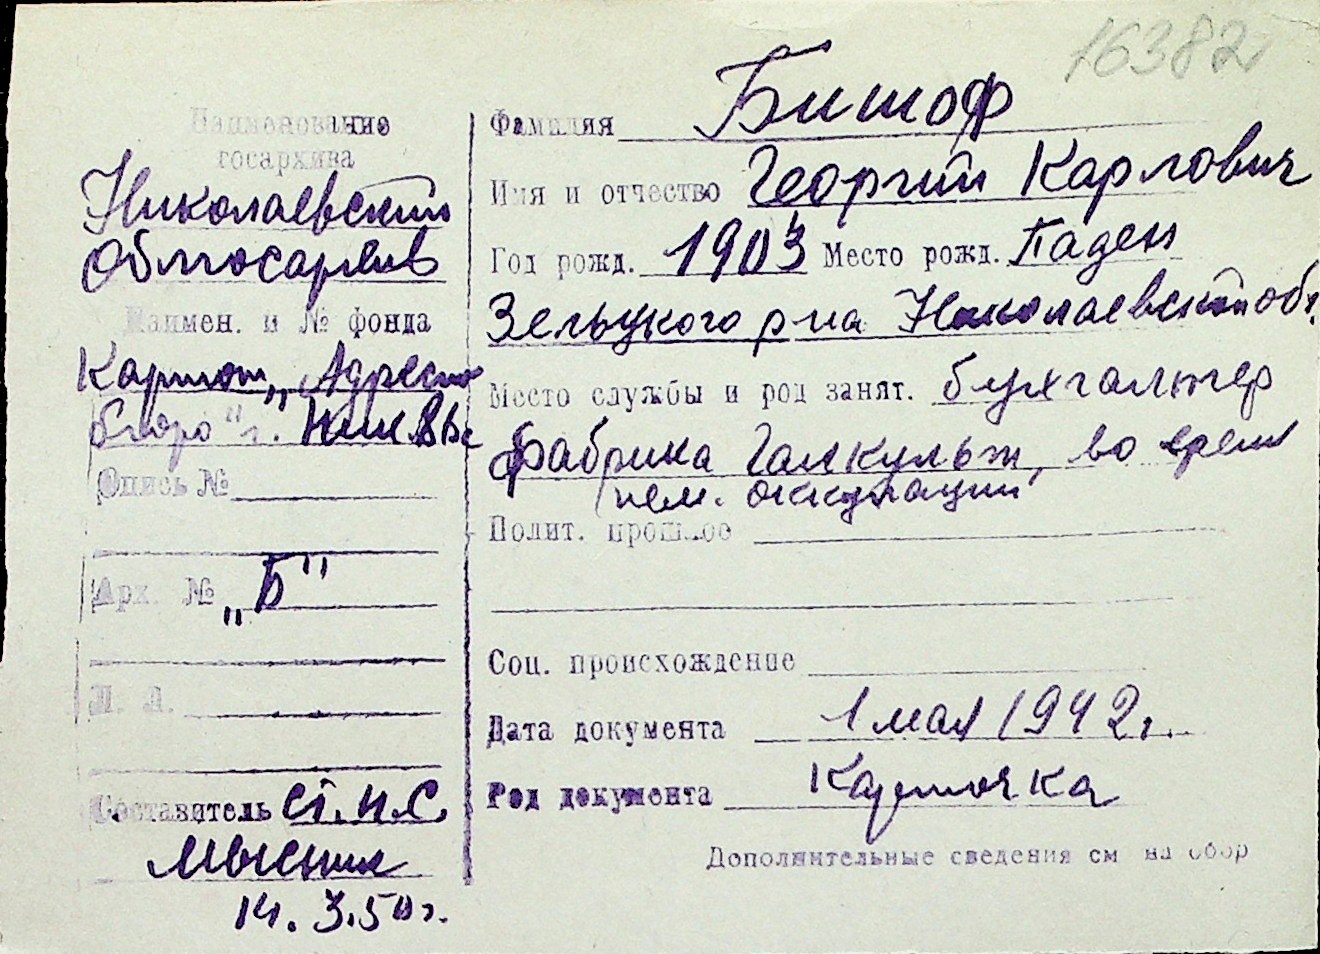 16382
Наименование
госархива
Николаевский
Облгосархив
Наимен. и № фонда
Картот. „Адресно
бюро" г. Ник
Опись №
Арх. № „Б"
Л. Л.
Составитель ст. н.с.
14.3.50 г.
Фамилия Бишоф
Имя и отчество Георгий Карлович
Год рожд. 1903 Место рожд. Баден
Зельцкого р-на Николаевской обл.
Место службы и род занят. бухгалтер
фабрика Галкульт, во время
нем. оккупации
Полит. прошлое
Соц. происхождение
Дата документа 1 мая 1942 г.
Род документа Карточка
Дополнительные сведения см на обор